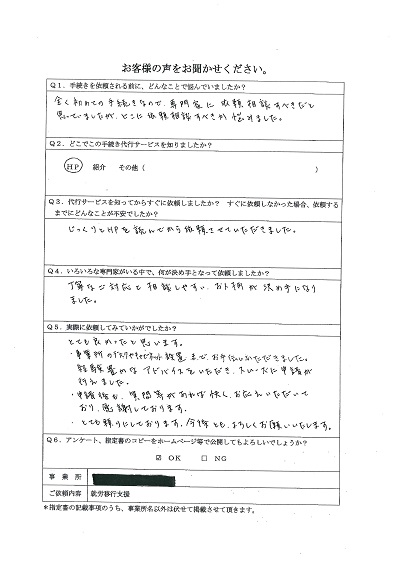 お客様の声をお聞かせください。
Q1.手続きを依頼される前に、どんなことで悩んでいましたか？
全く初めての手続きなので、専門家に依頼相談すべきだと
思っていましたが、どこに依頼相談すべきか悩みました。
Q2.どこでこの手続き代行サービスを知りましたか？
HP 紹介 その他（ ）
Q3.代行サービスを知ってからすぐに依頼しましたか？ すぐに依頼しなかった場合、依頼する
までにどんなことが不安でしたか？
じっくりとHPを読んでから依頼させていただきました。
Q4.いろいろな専門家がいる中で、何が決め手となって依頼しましたか？
丁寧なご対応と相談しやすい、お人柄が決め手になり
ました。
Q5.実際に依頼してみていかがでしたか？
とても良かったと思います。
・事業所のデスクやキャビネット設置まで、お手伝いいただきました。
経験豊富なアドバイスをいただき、スムーズに申請が
行えました。
・申請後も、質問等があれば快く、お応えいただいて
おり、感謝しております。
・とても頼りにしております。今後とも、よろしくお願いいたします。
Q6.アンケート、指定書のコピーをホームページ等で公開してもよろしいでしょうか？
☑ OK □ NG
事業所
ご依頼内容 就労移行支援
＊指定書の記載事項のうち、事業所名以外は伏せて掲載させて頂きます。